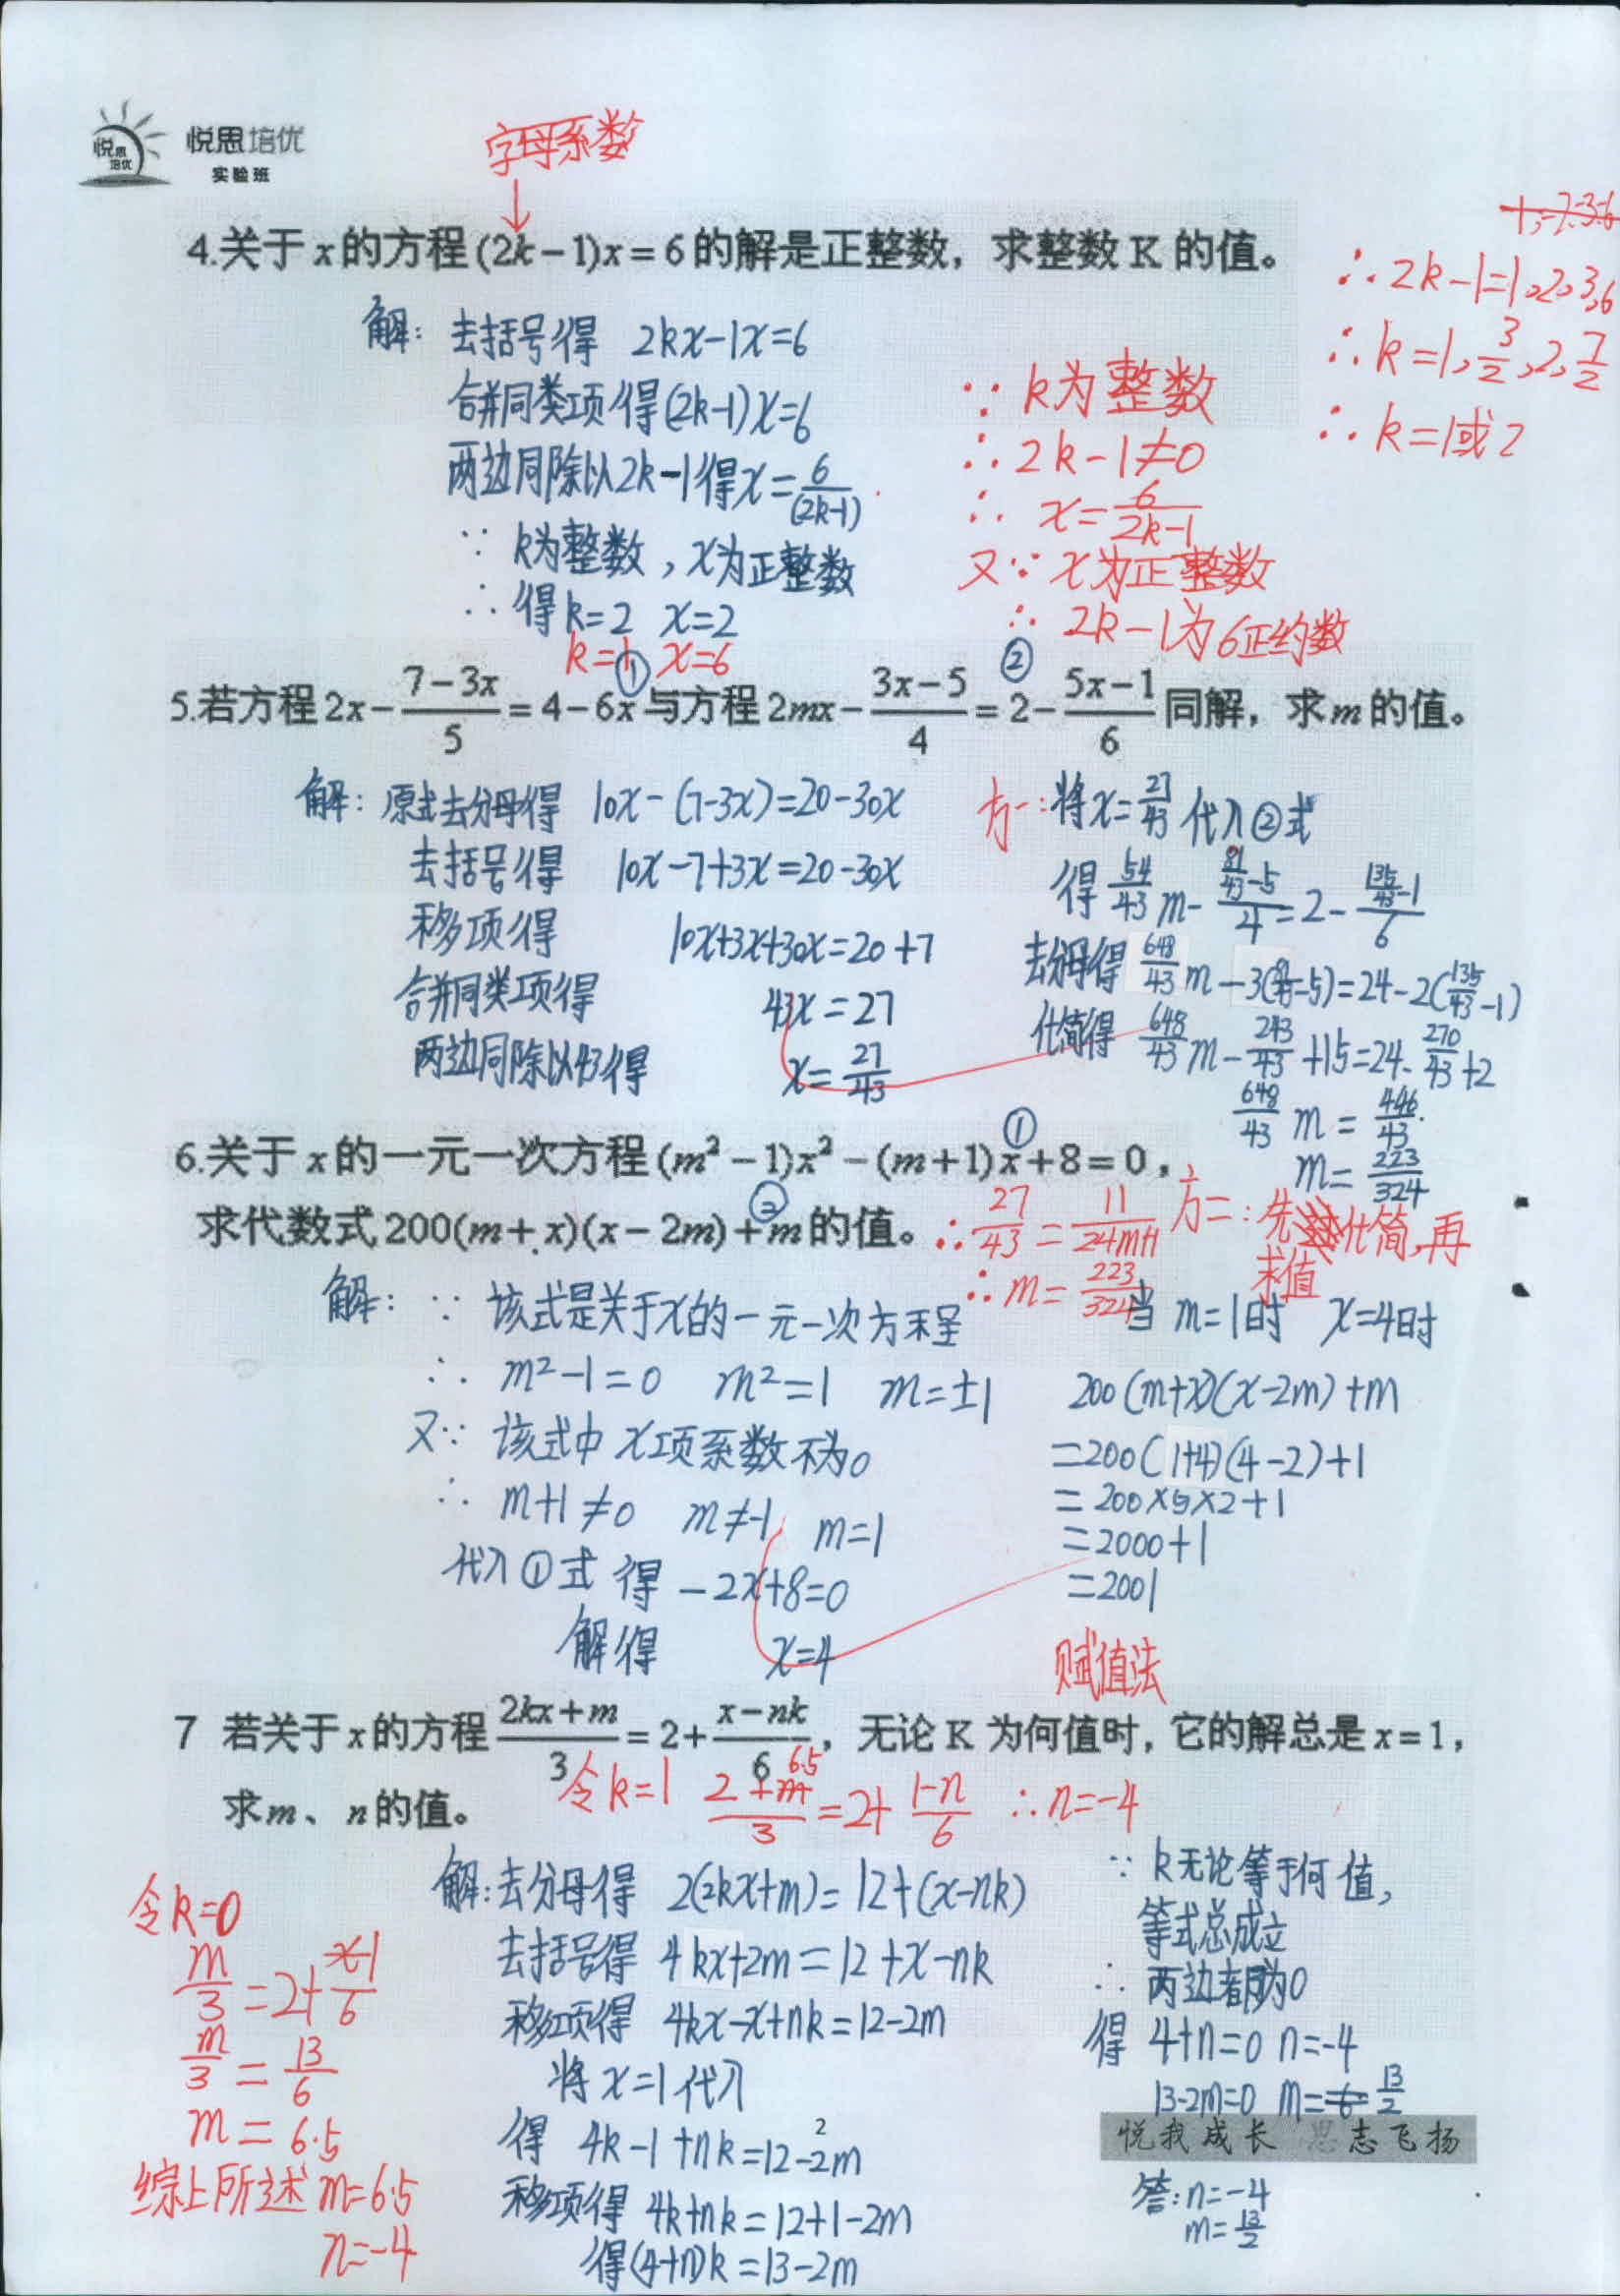 悦思培优
悦思培优
实验班
字母系数
4.关于 x 的方程 (2k－1)x＝6 的解是正整数，求整数 K 的值。
解： 去括号得 2kx－1x＝6
合并同类项得(2k-1)x=6
两边同除以2k-1得x=6/(2k-1)
∵ k为整数，x为正整数
∴ 得k=2 x=2
k=1 x=6
∵ k为整数
∴ 2k-1≠0
∴ x=6/2k-1
又∵ x为正整数
∴ 2k-1为6正约数
∴ 2k-1=1,2,3,6
∴ k=1, 3/2, 2, 7/2
∴ k=1或2
① ②
5.若方程 2x－7－3x/5＝4－6x 与方程 2mx－3x－5/4＝2－5x－1/6 同解，求 m 的值。
解：原式去分母得 10x-(7-3x)=20-30x
去括号得 10x-7+3x=20-30x
移项得 10x+3x+30x=20+7
合并同类项得 43x=27
两边同除以43得 x=27/43
方一：将x=27/43 代入②式
得 54/43 m- 81/43-5/4=2- 135/43-1/6
去分母得 648/43 m-3(81/43-5)=24-2(135/43-1)
化简得 648/43 m-243/43+15=24-270/43+2
648/43 m=446/43
m=223/324
①
6.关于 x 的一元一次方程 (m²－1)x²－(m＋1)x＋8＝0，
②
求代数式 200(m＋x)(x－2m)＋m 的值。
∴ 27/43=11/24m+1
∴ m=223/324
方二：先化简，再
求值
解： ∵ 该式是关于x的一元一次方程
∴ m²-1=0 m²=1 m=±1
又∵ 该式中x项系数不为0
∴ m+1≠0 m≠-1 m=1
代入①式 得 -2x+8=0
解得 x=4
当 m=1时 x=4时
200(m+x)(x-2m)+m
=200(1+4)(4-2)+1
=200×5×2+1
=2000+1
=2001
赋值法
7 若关于 x 的方程 2kx＋m/3＝2＋x－nk/6，无论 K 为何值时，它的解总是 x＝1，
求 m、n 的值。
令k=1 2+m/3=2+1-n/6 ∴n=-4
6.5
解：去分母得 2(2kx+m)=12+(x-nk)
去括号得 4kx+2m=12+x-nk
移项得 4kx-x+nk=12-2m
将 x=1代入
得 4k-1+nk=12-2m
2
移项得 4k+nk=12+1-2m
得(4+n)k=13-2m
∵ k无论等于何值，
等式总成立
∴ 两边都为0
得 4+n=0 n=-4
13-2m=0 m=13/2
悦我成长 思志飞扬
答：n=-4
m=13/2
令k=0
m/3=2+1/6
m/3=13/6
m=6.5
综上所述 m=6.5
n=-4